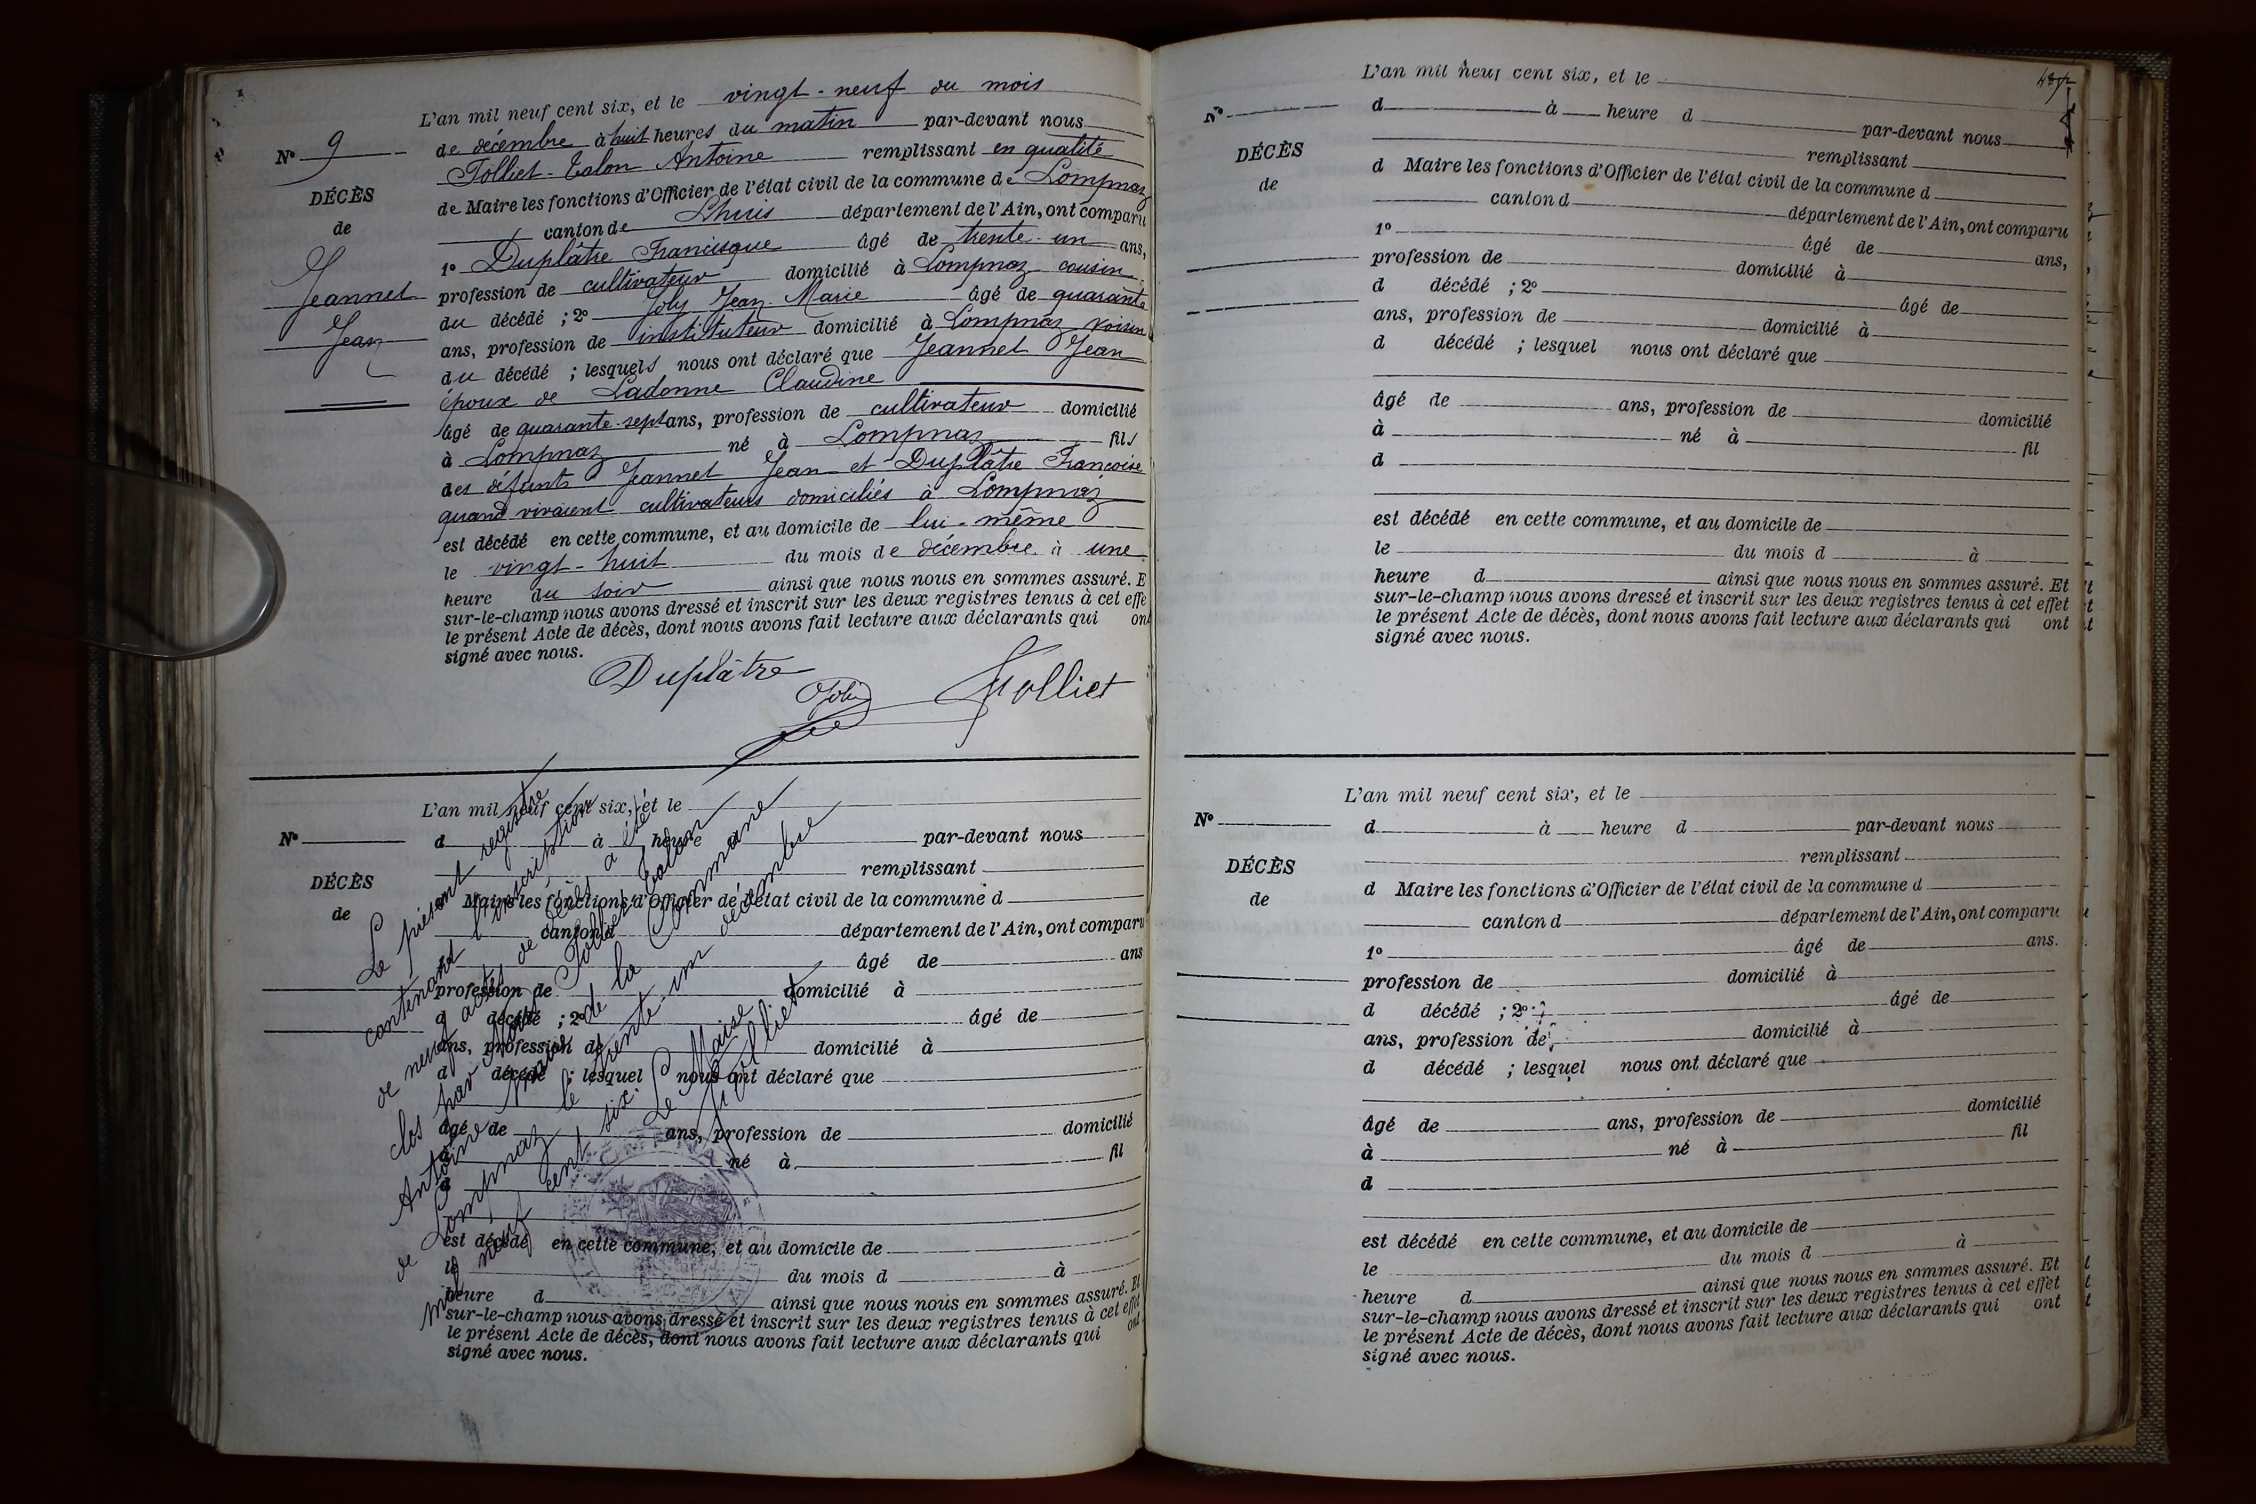 L'an mil neuf cent six, et le vingt-neuf du mois
de décembre à huit heures du matin par-devant nous
Tolliet-Talon Antoine remplissant en qualité
de Maire les fonctions d'Officier de l'état civil de la commune de Lompnaz
canton de Lhuis département de l'Ain, ont comparu
1º Duplâtre Francisque âgé de trente-un ans,
profession de cultivateur domicilié à Lompnaz cousin
du décédé ; 2º Joly Jean-Marie âgé de quarante
ans, profession de instituteur domicilié à Lompnaz voisin
du décédé ; lesquels nous ont déclaré que Jeannet Jean
époux de Ladonne Claudine
âgé de quarante-sept ans, profession de cultivateur domicilié
à Lompnaz né à Lompnaz fils
des défunts Jeannet Jean et Duplâtre Françoise
quand vivaient cultivateurs domiciliés à Lompnaz
est décédé en cette commune, et au domicile de lui-même
le vingt-huit du mois de décembre à une
heure du soir ainsi que nous nous en sommes assuré. E
sur-le-champ nous avons dressé et inscrit sur les deux registres tenus à cet effe
le présent Acte de décès, dont nous avons fait lecture aux déclarants qui ont
signé avec nous.
Nº 9
DÉCÈS
de
Jeannet
Jean
Duplâtre
Joly
Tolliet
L'an mil neuf cent six, et le
Nº
d à heure par-devant nous
remplissant
DÉCÈS
de
d Maire les fonctions d'Officier de l'état civil de la commune d
canton d département de l'Ain, ont comparu
âgé de ans
profession de domicilié à
d décédé ; 2º âgé de
ans, profession de domicilié à
d décédé ; lesquel nous ont déclaré que
âgé de ans, profession de domicilié
à né à fil
d
est décédé en cette commune, et au domicile de
le du mois d à
heure d ainsi que nous nous en sommes assuré. Et
sur-le-champ nous avons dressé et inscrit sur les deux registres tenus à cet effet
le présent Acte de décès, dont nous avons fait lecture aux déclarants qui ont
signé avec nous.
Le présent registre
contenant l'inscription
de neuf actes de décès a été
clos par Nous Tolliet-Talon
Antoine Maire de la Commune
de Lompnaz le trente-un décembre
mil neuf cent six.
Le Maire
Tolliet
L'an mil neuf cent six, et le
Nº
d à heure d par-devant nous
remplissant
DÉCÈS
de
d Maire les fonctions d'Officier de l'état civil de la commune d
canton d département de l'Ain, ont comparu
1º âgé de ans,
profession de domicilié à
d décédé ; 2º âgé de
ans, profession de domicilié à
d décédé ; lesquel nous ont déclaré que
âgé de ans, profession de domicilié
à né à fil
d
est décédé en cette commune, et au domicile de
le du mois d à
heure d ainsi que nous nous en sommes assuré. Et
sur-le-champ nous avons dressé et inscrit sur les deux registres tenus à cet effet
le présent Acte de décès, dont nous avons fait lecture aux déclarants qui ont
signé avec nous.
L'an mil neuf cent six, et le
Nº
d à heure d par-devant nous
remplissant
DÉCÈS
de
d Maire les fonctions d'Officier de l'état civil de la commune d
canton d département de l'Ain, ont comparu
1º âgé de ans.
profession de domicilié à
d décédé ; 2º âgé de
ans, profession de domicilié à
d décédé ; lesquel nous ont déclaré que
âgé de ans, profession de domicilié
à né à fil
d
est décédé en cette commune, et au domicile de
le du mois d à
heure d ainsi que nous nous en sommes assuré. Et
sur-le-champ nous avons dressé et inscrit sur les deux registres tenus à cet effet
le présent Acte de décès, dont nous avons fait lecture aux déclarants qui ont
signé avec nous.